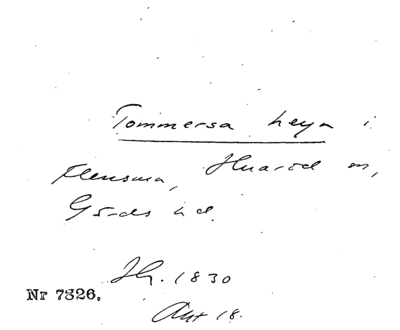 Tommersa heya i
Flensma, Huared m,
Gårds hd.
Jh. 1830
Nr 7326.
Akt 18.